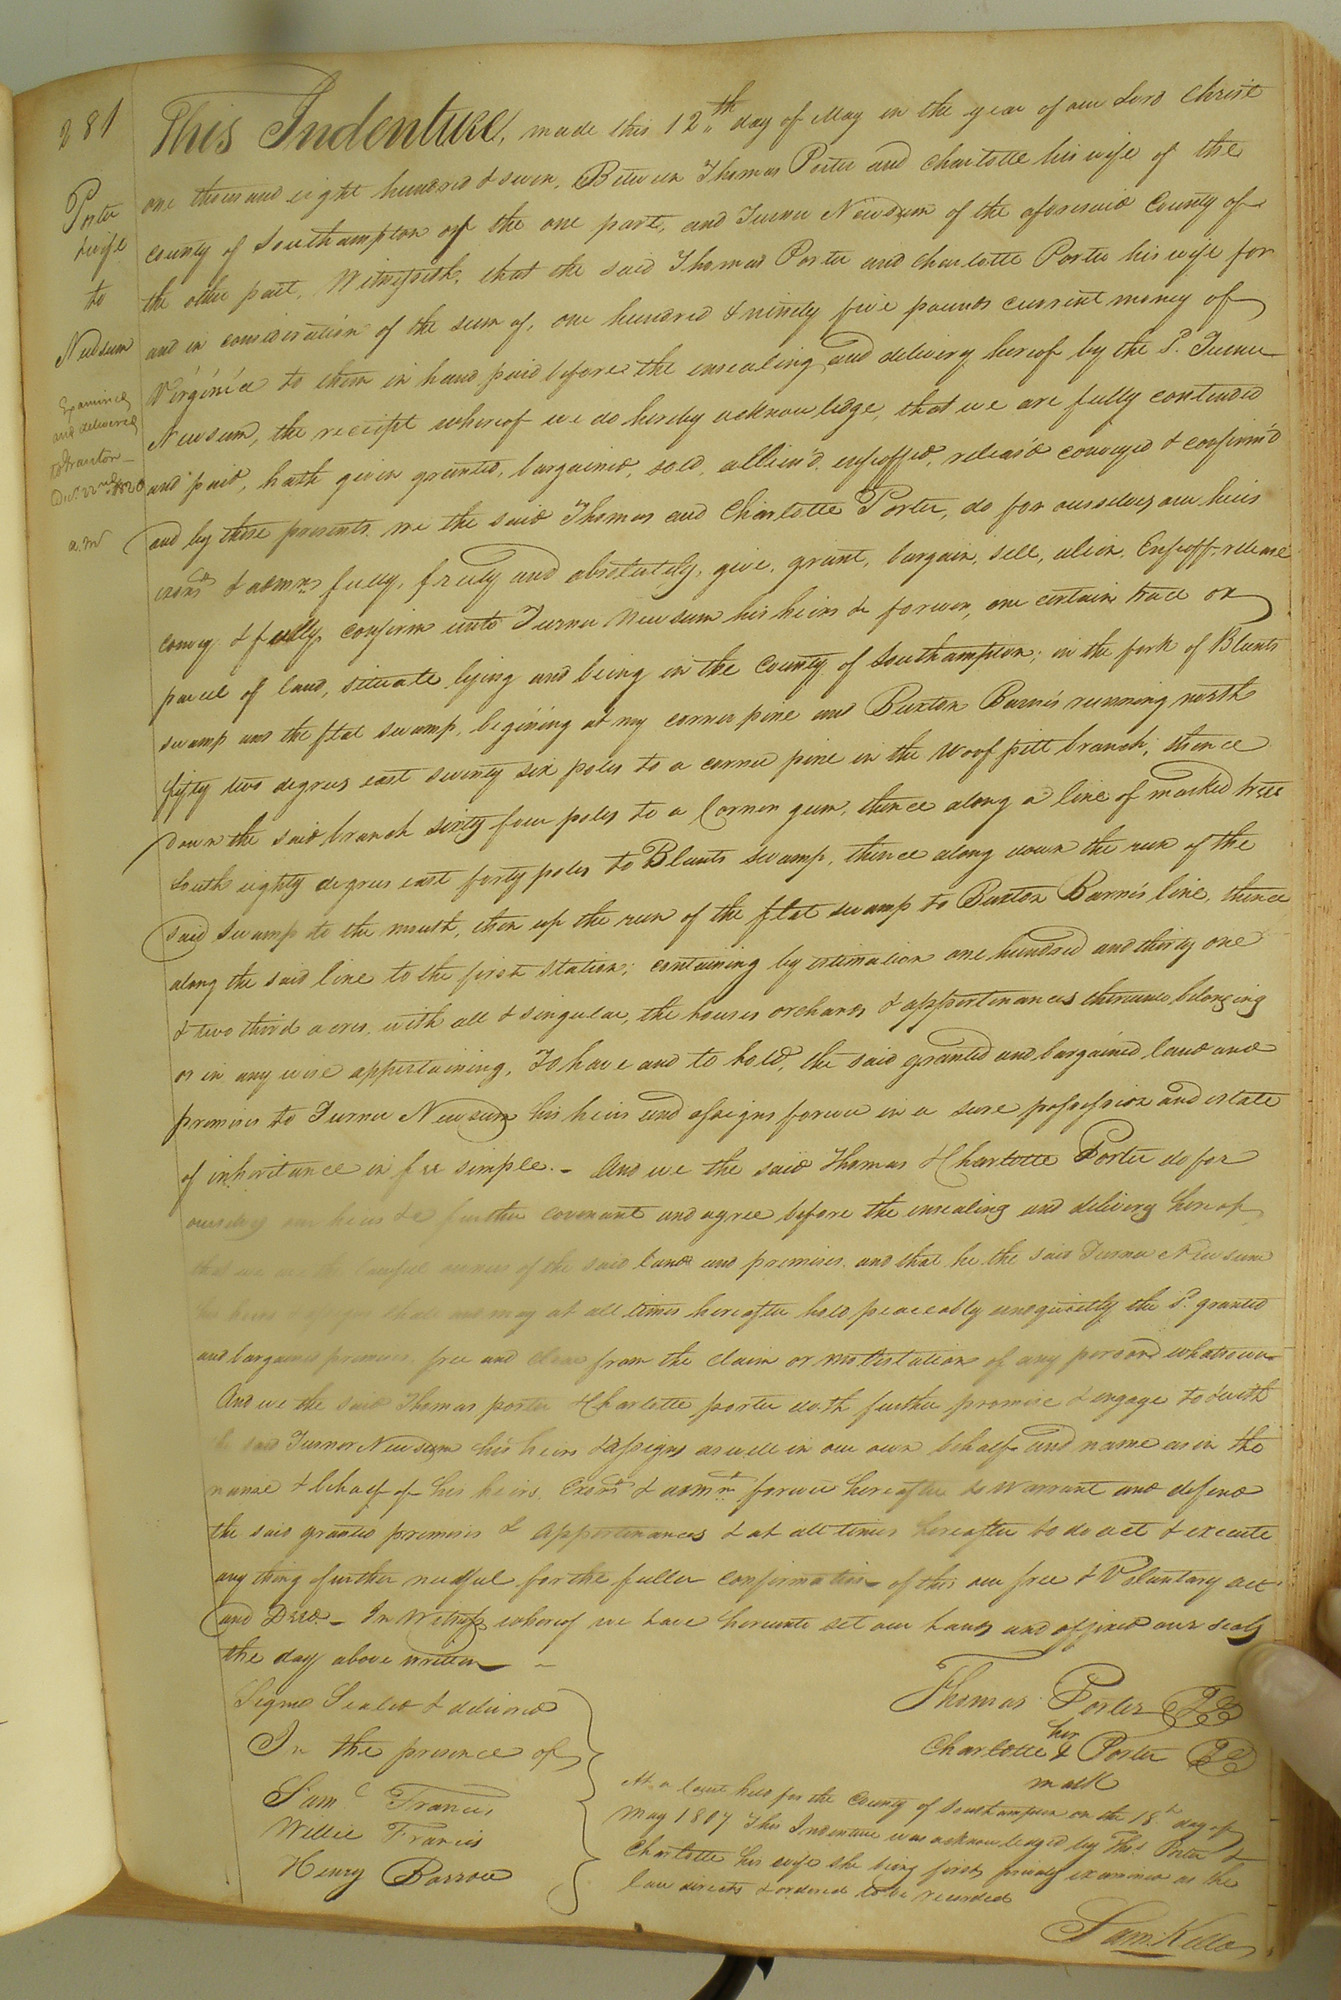 281
Porter
& wife
to
Newsum
Examined
and delivered
to Grantor
Decr. 22nd 1820
This Indenture, made this 12th day of May in the year of our Lord Christ
one thousand eight hundred & seven, Between Thomas Porter and Charlotte his wife of the
County of Southampton of the one part, and Turner Newsum of the aforesaid County of
the other part, Witnesseth, that the said Thomas Porter and Charlotte Porter his wife for
and in consideration of the sum of, one hundred & ninety five pounds current money of
Virginia to them in hand paid before the ensealing and delivery hereof by the Sd. Turner
Newsum, the receipt whereof we do hereby acknowledge, that we are fully contented
and paid, hath given granted, bargained, sold, allien'd, enfeoffed, releas'd conveyed & confirm'd
and by these presents we the said Thomas and Charlotte Porter, do for ourselves our heirs
exors & admrs fully, freely and absolutely, give, grant, bargain, sell, alien, Enfeoff, release
convey & fully confirm unto Turner Newsum his heirs &c forever, one certain tract or
parcel of land, situate lying and being in the County of Southampton; in the fork of Blunts
swamp and the flat swamp, begining at my corner pine and Buxton Barnes running north
fifty two degrees east seventy six poles to a corner pine in the Woof pitt branch, thence
down the said branch sixty four poles to a Corner gum, thence along a line of marked trees
South eighty degrees east forty poles to Blunts Swamp, thence along down the run of the
said Swamp to the mouth, then up the run of the flat swamp to Buxton Barnes line, thence
along the said line to the first station; containing by estimation one hundred and thirty one
& two third acres, with all & singular, the houses orchards & appertenances thereunto belonging
or in any wise appertaining, To have and to hold, the said granted and bargained land and
premises to Turner Newsum his heirs and assigns forever in a sure possession and estate
of inheritance in fee simple. - And we the said Thomas & Charlotte Porter do for
ourselves our heirs &c further covenant and agree before the ensealing and delivery hereof
that we are the lawful owners of the said land and premises, and that he the said Turner Newsum
his heirs & assigns shall and may at all times hereafter hold peaceably and quietly the Sd. granted
and bargained premises, free and clear from the claim or molistation of any person whatsoever
And we the said Thomas porter & Charlotte porter doth further promise & engage to & with
the said Turner Newsum his heirs & assigns as well in our own behalf and name as in the
name & behalf of his heirs, Exors & admrs forever hereafter to Warrant and defend
the said granted premises & appertenances & at all times hereafter to do act & execute
any thing further needful for the fuller confirmation of this our free & Voluntary act
and Deed. - In Witness whereof we have hereunto set our hands and affixed our seals
the day above written
Signed Sealed & delivered
In the presence of
Saml Francis
Willie Francis
Henry Barrow
Thomas Porter
her
Charlotte X Porter
mark
At a Court held for the County of Southampton on the 18th day of
May 1807 This Indenture was acknowledged by Thos. Porter &
Charlotte his wife she being first privily examined as the
law directs & ordered to be recorded
Sam. Kello